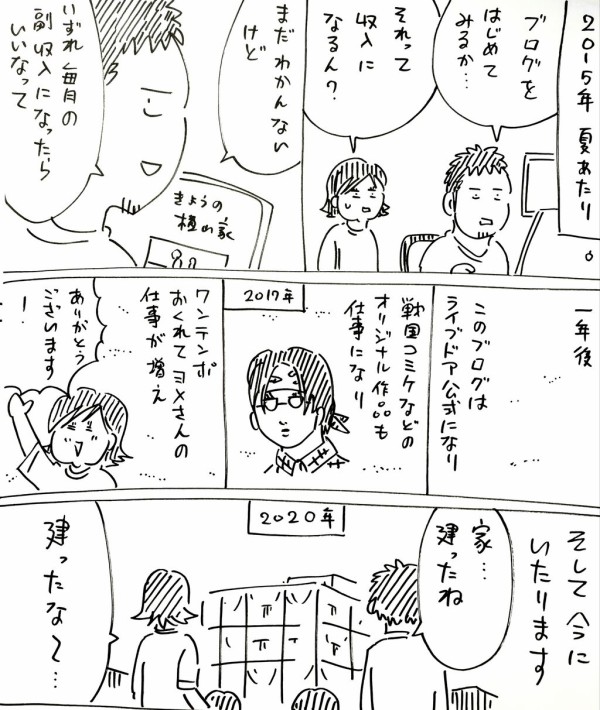 2015年 夏あたり
ブログを
はじめて
みるか…
それって
収入に
なるん?
まだわかんない
けど
きょうの
横山家
いずれ毎月の
副収入になったら
いいなって
一年後
このブログは
ライブドア公式になり
2017年
戦国コミケなどの
オリジナル作品も
仕事になり
ワンテンポ
おくれてヨメさんの
仕事が増え
ありがとう
ございます
!
そして今に
いたります
2020年
家…
建ったね
建ったな〜…